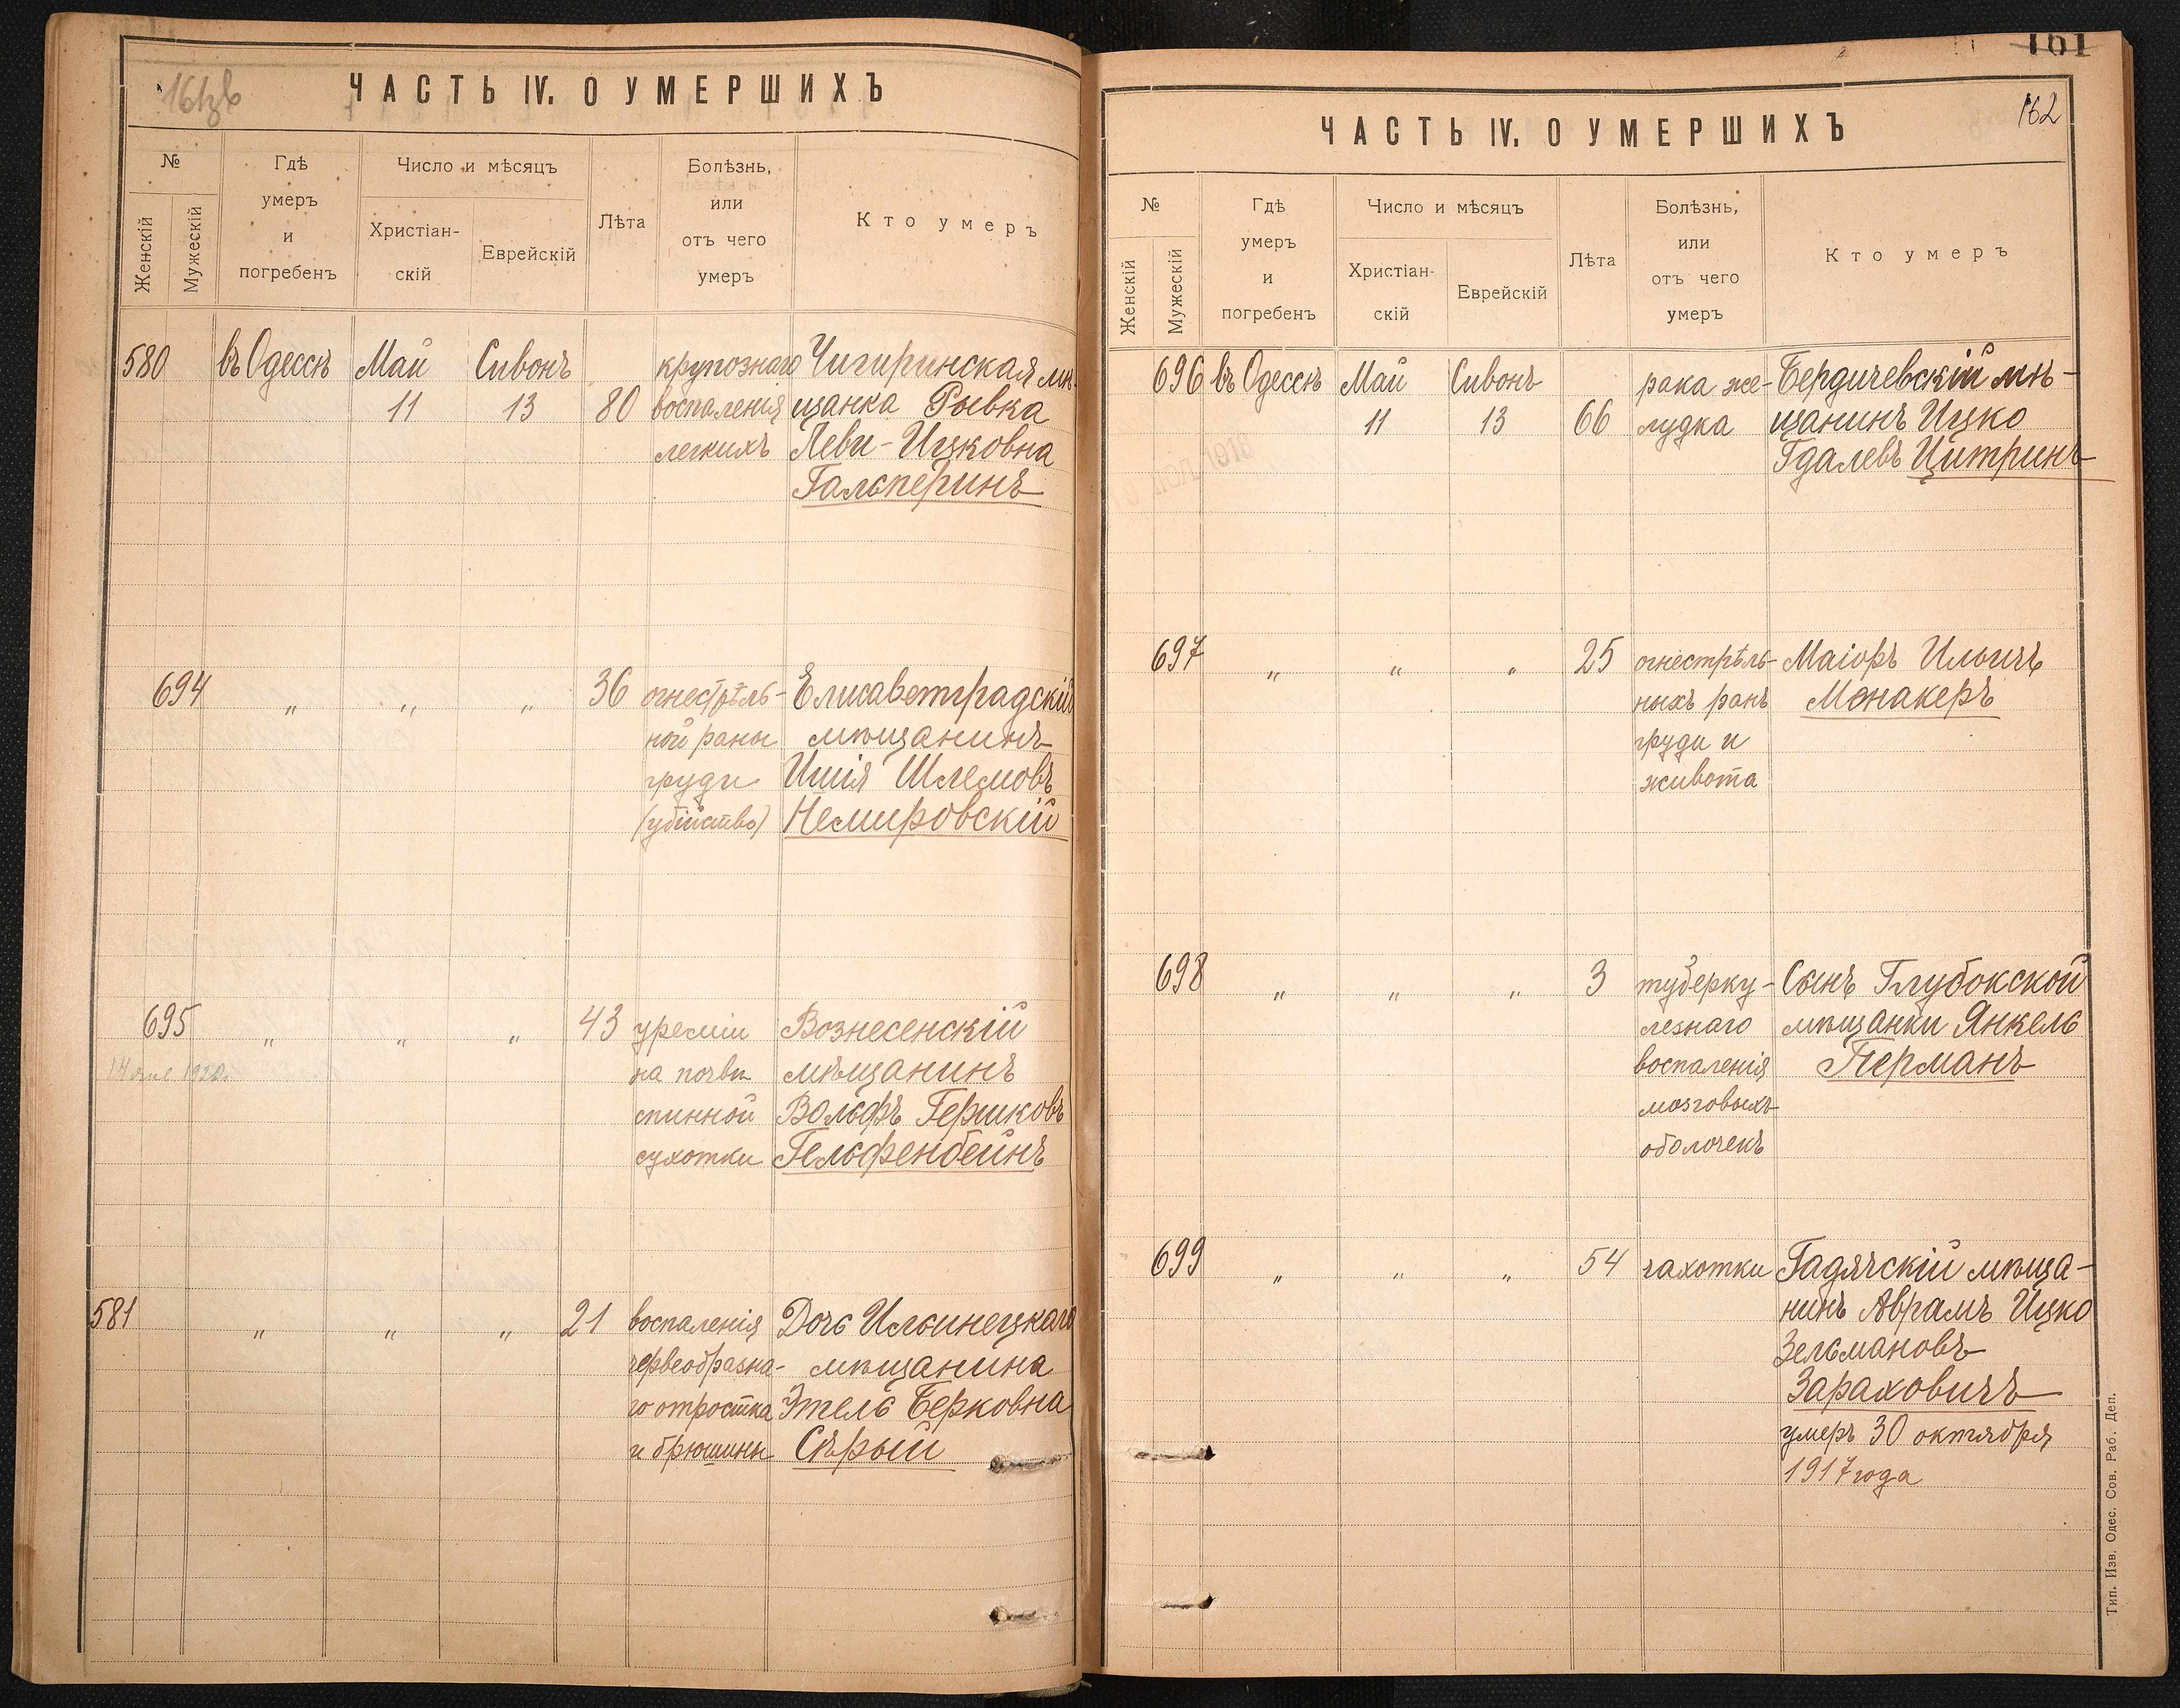 ЧАСТЬ IV. О УМЕРШИХЪ
№
Женскій
Мужескій
Гдѣ
умеръ
и
погребенъ
Число и мѣсяцъ
Христіан-
скій
Еврейскій
Лѣта
Болѣзнь,
или
отъ чего
умеръ
Кто умеръ
580 въ Одессѣ Май Сивонъ крупознаго Чигиринская мѣ-
11 13 80 воспаленія щанка Рывка
легкихъ Леви-Ицковна
Гальперинъ
694 „ „ „ 36 огнестрѣль- Елисаветградскій
ной раны мѣщанинъ
груди Ишія Шлемовъ
(убійство) Немировскій
695 „ „ „ 43 уреміи Вознесенскій
1920. на почвѣ мѣщанинъ
спинной Вольфъ Гершковъ
сухотки Гельфенбейнъ
581 „ „ „ 21 воспаленія Дочь Ильинецкаго
червеобразна- мѣщанина
го отростка Этель Берковна
и брюшины Сѣрый
161
162
ЧАСТЬ IV. О УМЕРШИХЪ
№
Женскій
Мужескій
Гдѣ
умеръ
и
погребенъ
Число и мѣсяцъ
Христіан-
скій
Еврейскій
Лѣта
Болѣзнь,
или
отъ чего
умеръ
Кто умеръ
696 въ Одессѣ Май Сивонъ рака же- Бердичевскій мѣ-
11 13 66 лудка щанинъ Ицко
Гдалевъ Цитринъ
697 „ „ „ 25 огнестрѣль- Маіоръ Ильичъ
ныхъ ранъ Монакеръ
груди и
живота
698 „ „ „ 3 туберку- Сынъ Глубокской
лезнаго мѣщанки Янкель
воспаленія Перманъ
мозговыхъ
оболочекъ
699 „ „ „ 54 чахотки Гадячскій мѣща-
нинъ Аврамъ Ицко
Зельмановъ
Зараховичъ
умеръ 30 октября
1917 года
Тип. Изв. Одес. Сов. Раб. Деп.